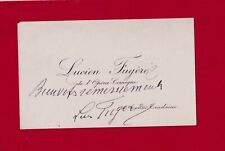 Lucien Fugère
de l'Opéra Comique
Bien vifs remerciements
Luc Fugère